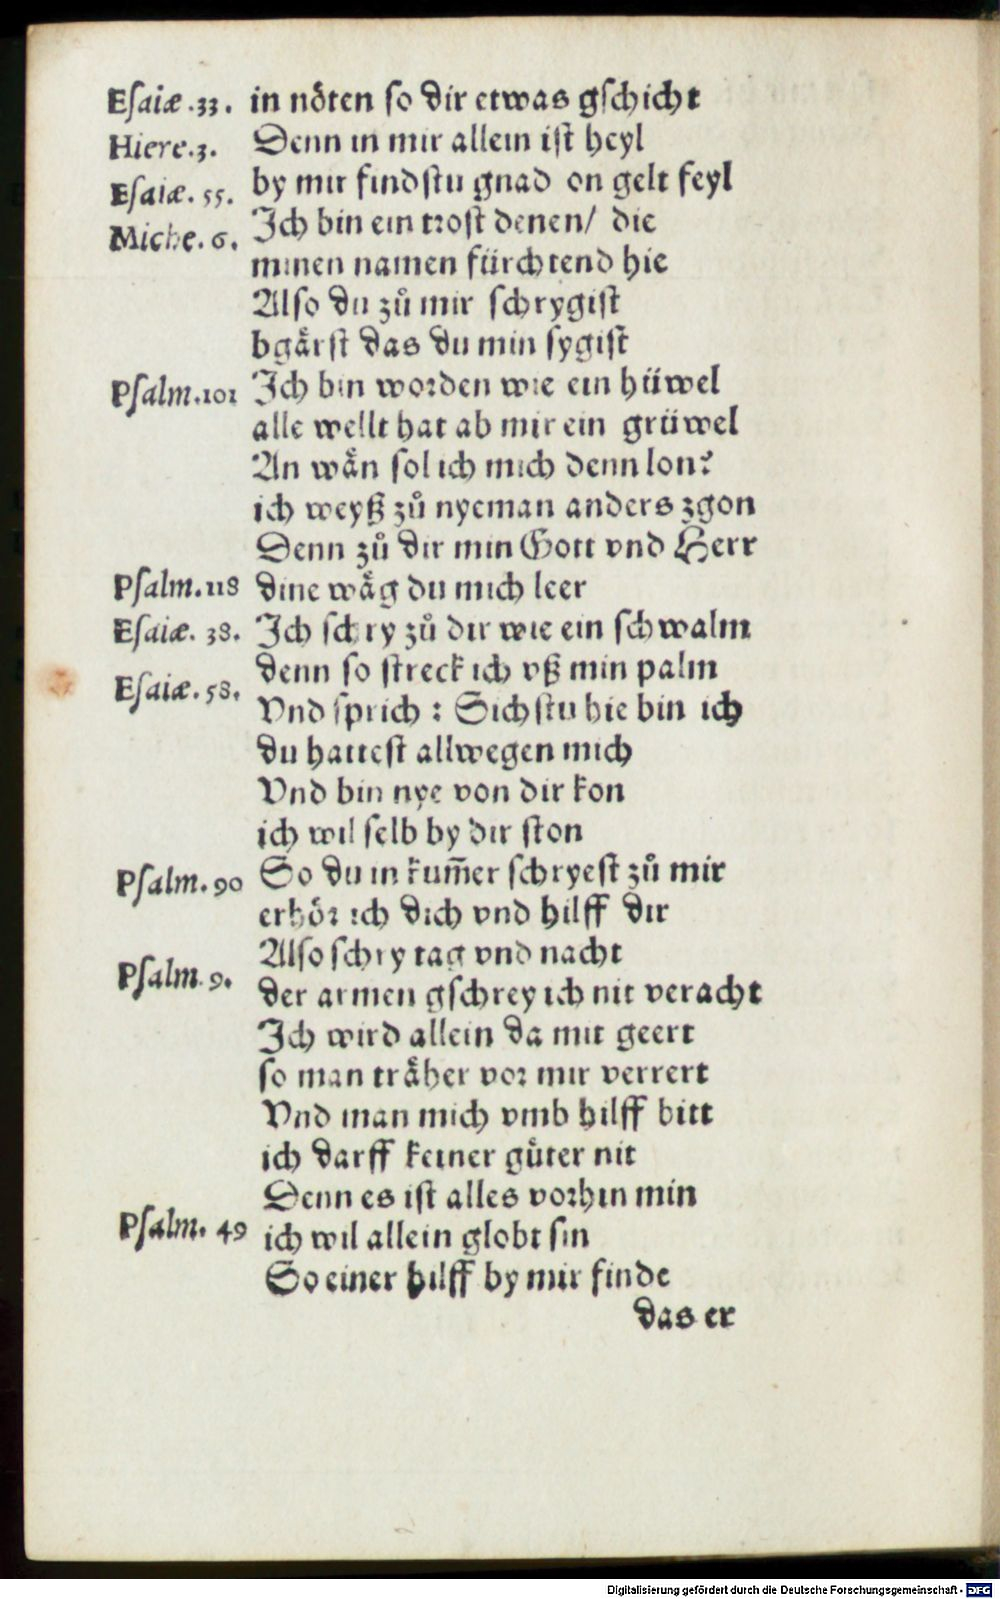 Esaiæ .33. in nöten so dir etwas gschicht
Hiere.3. Denn in mir allein ist heyl
Esaiæ. 55. by mir findstu gnad on gelt feyl
Miche. 6. Ich bin ein trost denen/ die
minen namen fürchtend hie
Also du zů mir schrygist
bgårst das du min sygist
Psalm.101 Ich bin worden wie ein hüwel
alle wellt hat ab mir ein grüwel
An wån sol ich mich denn lon?
ich weyß zů nyeman anders zgon
Denn zů dir min Gott vnd Herr
Psalm.118 dine wåg du mich leer
Esaiæ. 38. Ich schry zů dir wie ein schwalm
Esaiæ. 58. denn so streck ich vß min palm
Vnd sprich : Sichstu hie bin ich
du hattest allwegen mich
Vnd bin nye von dir kon
ich wil selb by dir ston
Psalm. 90 So du in kum̄er schryest zů mir
erhör ich dich vnd hilff dir
Also schry tag vnd nacht
Psalm. 9. der armen gschrey ich nit veracht
Ich wird allein da mit geert
so man tråher vor mir verrert
Vnd man mich vmb hilff bitt
ich darff keiner gůter nit
Denn es ist alles vorhin min
Psalm. 49 ich wil allein globt sin
So einer hilff by mir finde
das er
Digitalisierung gefördert durch die Deutsche Forschungsgemeinschaft - DFG